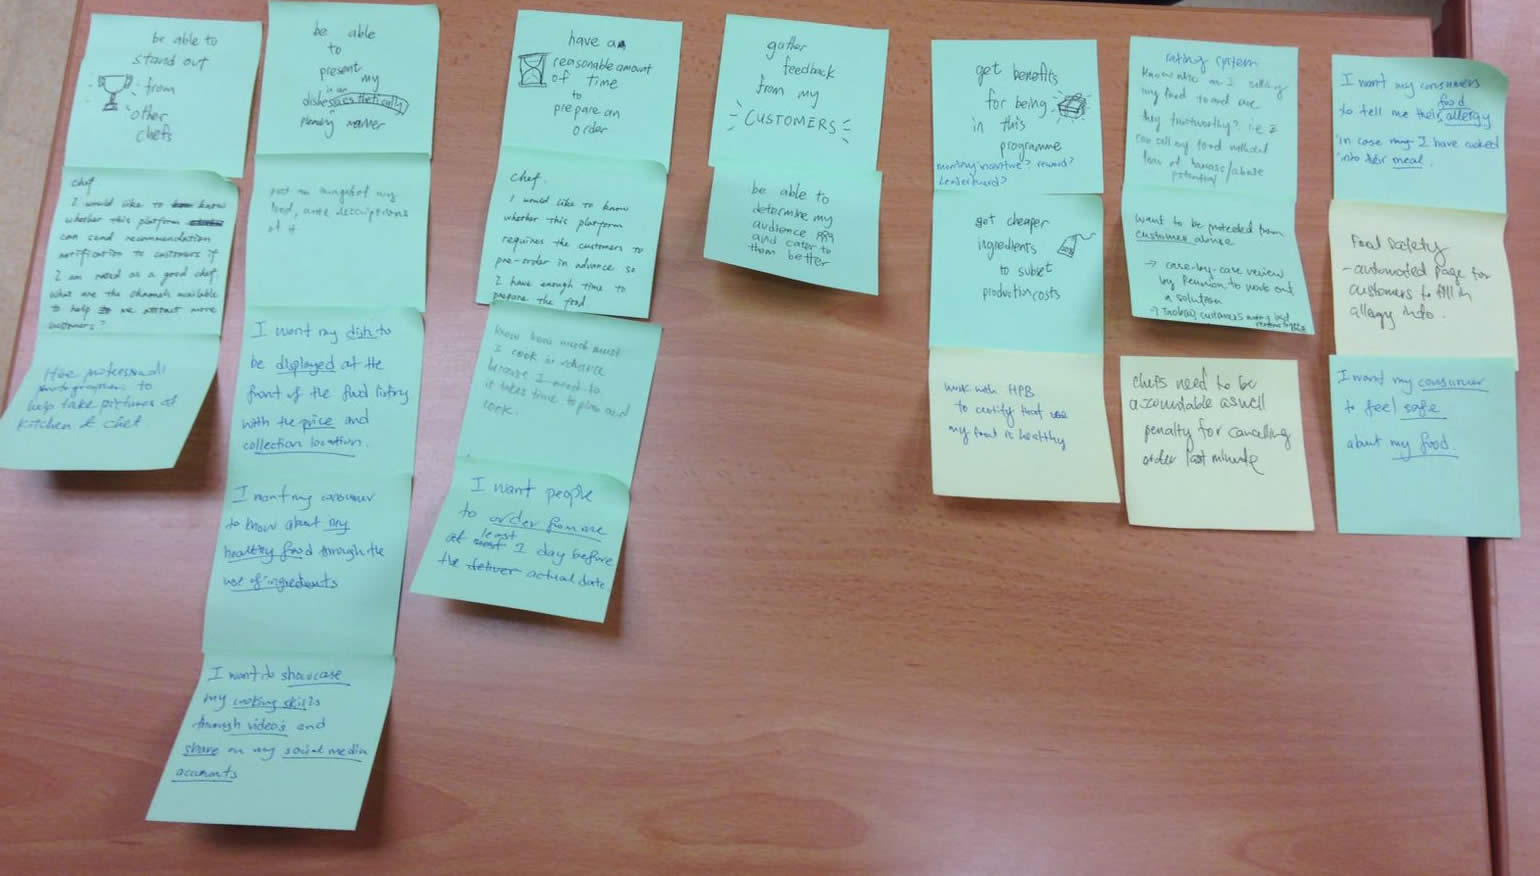 be able to
stand out
from
other
chefs
chef
I would like to know
whether this platform
can send recommendation
notification to customers if
I am rated as a good chef.
What are the channels available
to help me attract more
customers?
Hire professional
photographers to
help take pictures of
kitchen & chef.
be able
to
present my
dishes in an aesthetically
manner
post an image of my
food, and descriptions
of it
I want my dish to
be displayed at the
front of the food listing
with the price and
collection location.
I want my consumer
to know about my
healthy food through the
use of ingredients
I want to showcase
my cooking skills
through videos and
share on my social media
accounts
have a
reasonable amount
of time
to
prepare an
order
chef.
I would like to know
whether this platform
requires the customers to
pre-order in advance so
I have enough time to
prepare the food
know how much must
I cook in advance
because I need to
it takes time to plan and
cook.
I want people
to order from me
at least 1 day before
the deliver actual date
gather
feedback
from my
CUSTOMERS
be able to
determine my
audience
and cater to
them better
get benefits
for being
in this
programme
monetary incentive? reward?
Leaderboard?
get cheaper
ingredients
to subset
production costs
work with HPB
to certify that
my food is healthy
rating system
Know who am I selling
my food to and are
they trustworthy? i.e I
can sell my food without
fear of harass/abuse
potential
want to be protected from
customer abuse
→ case-by-case review
by Reunion to work out
a solution
→ customers
chefs need to be
accountable as well
penalty for cancelling
order last minute
I want my consumers
to tell me their food allergy
in case I have cooked
into their meal.
Food safety
- automated page for
customers to fill in
allergy info.
I want my consumer
to feel safe
about my food.